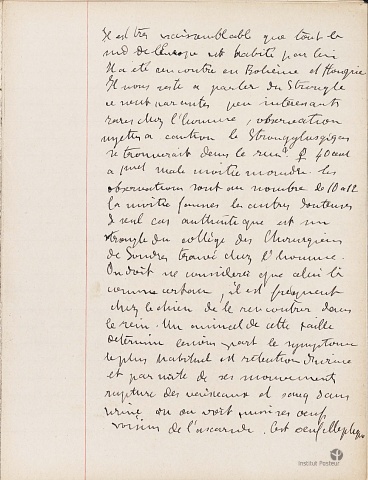 Il est très vraisemblable que tout le
sud de l'Europe est habité par lui
Il a été rencontré en Bohême et Hongrie
Il nous reste à parler du Strongle
ce sont parentes peu intéressants
rares chez l'homme, observation
sujettes a caution le Strongylus gigas
se trouverait dans le rein ♀ 40 cent
male moitié moindre. les
observations sont au nombre de 10 a 12
la moitié fausses les autres douteuses
le seul cas authentique est un
strongle du collège des Chirurgiens
de Londres trouvé chez l'homme.
On doit ne considérer que celui là
comme certain, il est fréquent
chez le chien de le rencontrer dans
le rein. Un animal de cette taille
détermine lésions part le symptome
le plus habituel est rétention d'urine
et par suite de ses mouvements
rupture des vaisseaux et sang dans
urine ou on voit oeufs
voisins de l'ascaride. C'est oeuf elliptique
Institut Pasteur